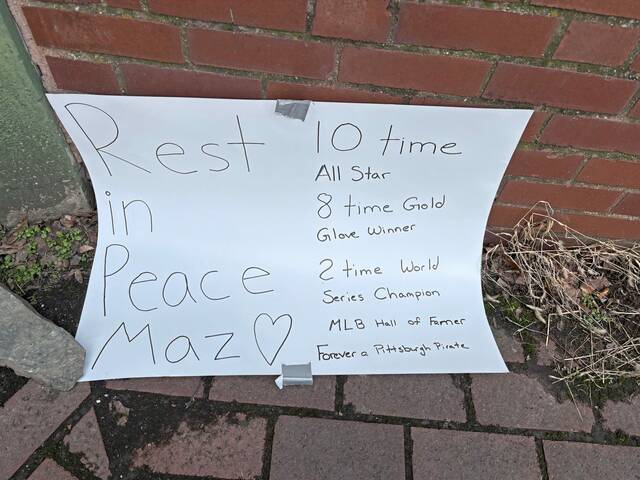 Rest
in
Peace
Maz ♡
10 time
All Star
8 time Gold
Glove Winner
2 time World
Series Champion
MLB Hall of Famer
Forever a Pittsburgh Pirate